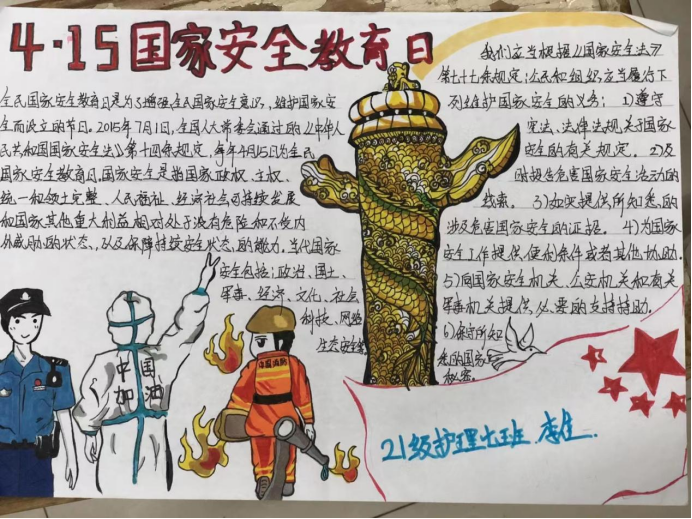 4·15国家安全教育日
全民国家安全教育日是为了增强全民国家安全意识，维护国家安
全而设立的节日。2015年7月1日，全国人大常委会通过的《中华人
民共和国国家安全法》第十四条规定，每年4月15日为全民
国家安全教育日。国家安全是指国家政权、主权、
统一和领土完整、人民福祉、经济社会可持续发展
和国家其他重大利益相对处于没有危险和不受内
外威胁的状态、以及保障持续安全状态的能力。当代国家
安全包括：政治、国土、
军事、经济、文化、社会
科技、网络
生态安全等
我们应当根据《国家安全法》
第七十七条规定：公民和组织应当履行下
列维护国家安全的义务：1)遵守
宪法、法律法规关于国家
安全的有关规定。2)及
时报告危害国家安全活动的
线索。3)如实提供所知悉的
涉及危害国家安全的证据。4)为国家
安全工作提供便利条件或者其他协助。
5)向国家安全机关、公安机关和有关
军事机关提供必要的支持协助。
6)保守所知
悉的国家
秘密。
中国
加油
中国消防
21级护理七班 李佳